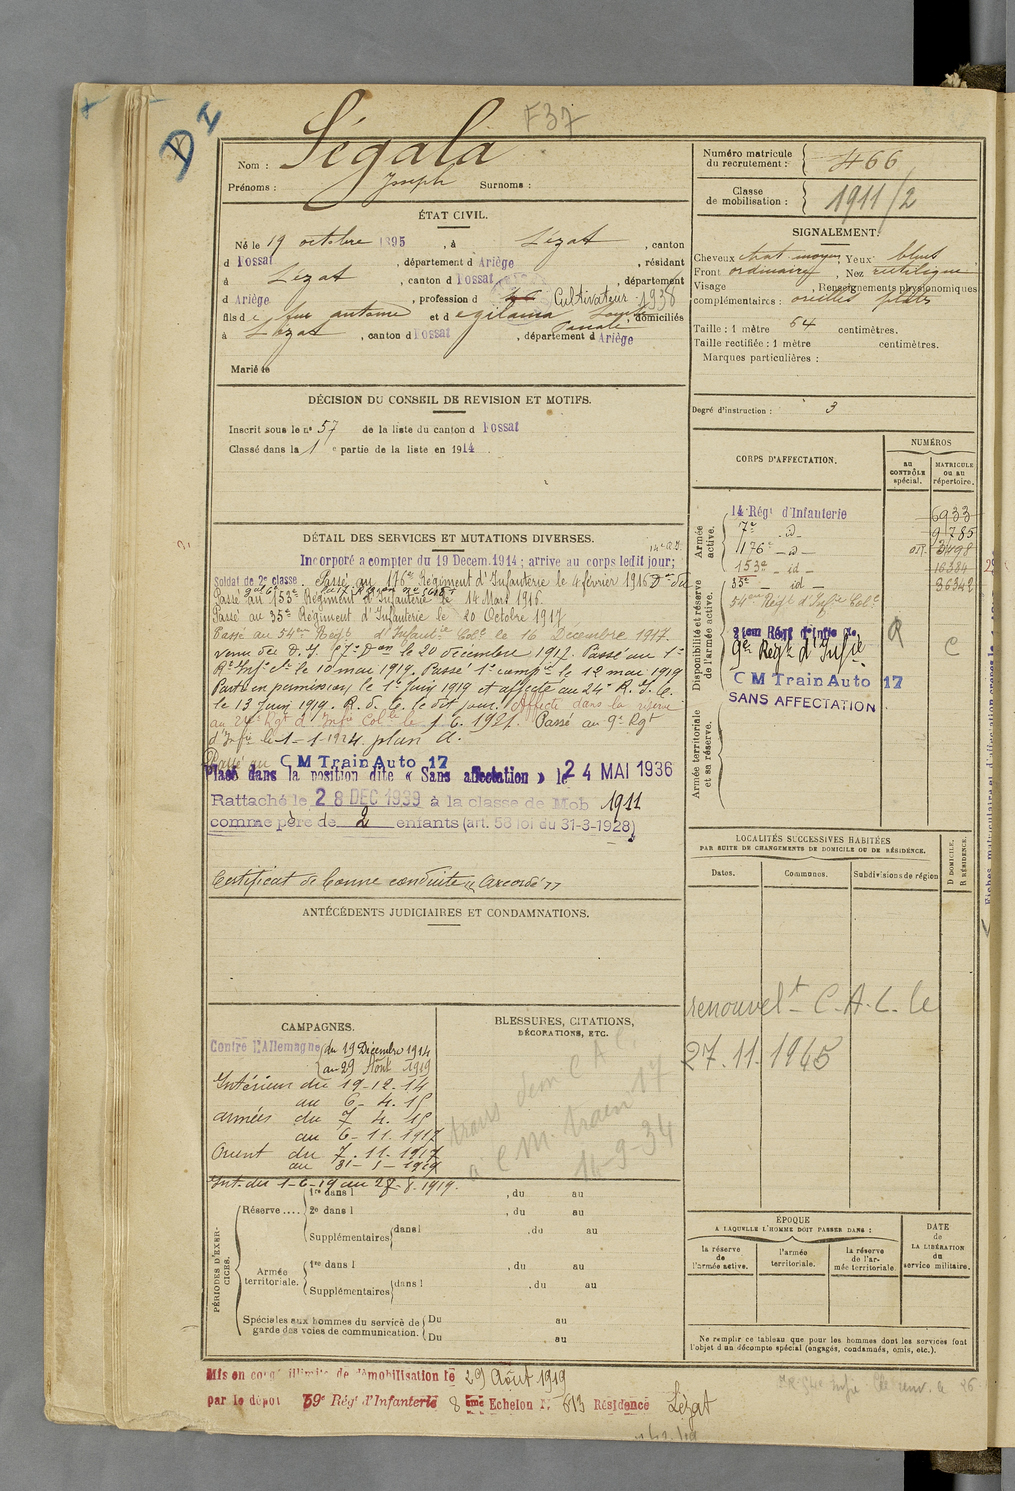 D I
F37
Nom : Ségala
Prénoms : Joseph Surnoms :
ÉTAT CIVIL.
Né le 19 octobre 1895, à Lézat, canton
d Fossat, département d Ariège, résidant
à Lézat, canton d Fossat, département
d Ariège, profession d Cultivateur 1938
fils de feu antoine et d domiciliés
à Lézat, canton d Fossat, département d Ariège
Marié le
DÉCISION DU CONSEIL DE REVISION ET MOTIFS.
Inscrit sous le no 57 de la liste du canton d Fossat
Classé dans la 1e partie de la liste en 1914.
DÉTAIL DES SERVICES ET MUTATIONS DIVERSES.
Incorporé a compter du 19 Decem. 1914; arrive au corps ledit jour;
Soldat de 2e classe. Passé au 176e Régiment d'Infanterie le 4 février 1916
Passé au 153e Régiment d'Infanterie le 14 Mars 1916.
Passé au 35e Régiment d'Infanterie le 20 Octobre 1917
Passé au 54me Regt d'Infantie Cole le 16 Décembre 1917.
venu du D. I. 17e Don le 20 décembre 1917. Passé au 1e
Rt Infie Ce le 10 mai 1919. Passé 1e compie le 12 mai 1919
Parti en permission, le 1e Juin 1919 et affecté au 24e R. I. C.
le 13 Juin 1919. R. d. C. le dit jour. Affecté dans la réserve
au 24e Rgt d'Infie Colle le 1.6.1921. Passé au 9e Rgt
d'Infie le 1-1-1924. plan A.
Passé au C M Train Auto 17
Placé dans la position dite « Sans affectation » le 24 MAI 1936
Rattaché le 28 DEC 1939 à la classe de Mob 1911
comme père de 2 enfants (art. 58 loi du 31-3-1928)
Certificat de bonne conduite "Accordé"
ANTÉCÉDENTS JUDICIAIRES ET CONDAMNATIONS.
CAMPAGNES.
Contre l'Allemagne du 19 Décembre 1914
au 29 Août 1919
Intérieur du 19-12-14
au 6-4-15
armées du 7 4.15
au 6-11-1917
Orient du 7.11.1917
au 31-5-1919
Int. du 1-6-19 au 28-8-1919.
BLESSURES, CITATIONS,
DÉCORATIONS, ETC.
trans C A C.
à C M. train 17
14-9-34
PÉRIODES D'EXERCICES.
Réserve....
1re dans l , du au
2e dans l , du au
Supplémentaires dans l , du au
Armée territoriale.
1re dans l , du au
Supplémentaires dans l , du au
Spéciales aux hommes du service de garde des voies de communication.
Du au
Du au
Numéro matricule du recrutement : 466
Classe de mobilisation : 1911/2
SIGNALEMENT.
Cheveux chat. moyen, Yeux bleus
Front ordinaire, Nez rectiligne
Visage , Renseignements physionomiques
complémentaires : oreilles plates
Taille : 1 mètre 64 centimètres.
Taille rectifiée : 1 mètre centimètres.
Marques particulières :
Degré d'instruction : 3
CORPS D'AFFECTATION.
NUMÉROS
au CONTRÔLE spécial.
MATRICULE ou au répertoire.
Armée active.
14 Régt d'Infanterie 6933
7e - d - 9785
176e - d - 3498
153e - id - 16384
35e id - 36342
Disponibilité et réserve de l'armée active.
54me Régt d'Infie Cole
9e Regt d'Infie R C
C M Train Auto 17
SANS AFFECTATION
Armée territoriale et sa réserve.
LOCALITÉS SUCCESSIVES HABITÉES
PAR SUITE DE CHANGEMENTS DE DOMICILE OU DE RÉSIDENCE.
Dates.
Communes.
Subdivisions de région
D DOMICILE.
R RÉSIDENCE.
renouvelt C.A.C. le
27.11.1965
ÉPOQUE
A LAQUELLE L'HOMME DOIT PASSER DANS :
la réserve de l'armée active.
l'armée territoriale.
la réserve de l'armée territoriale.
DATE de LA LIBÉRATION du service militaire.
Ne remplir ce tableau que pour les hommes dont les services font
l'objet d'un décompte spécial (engagés, condamnés, omis, etc.).
Mis en congé illimité de démobilisation le 29 Août 1919
par le dépôt 59e Régt d'Infanterie 8 ème Echelon N° 613 Résidence Lézat